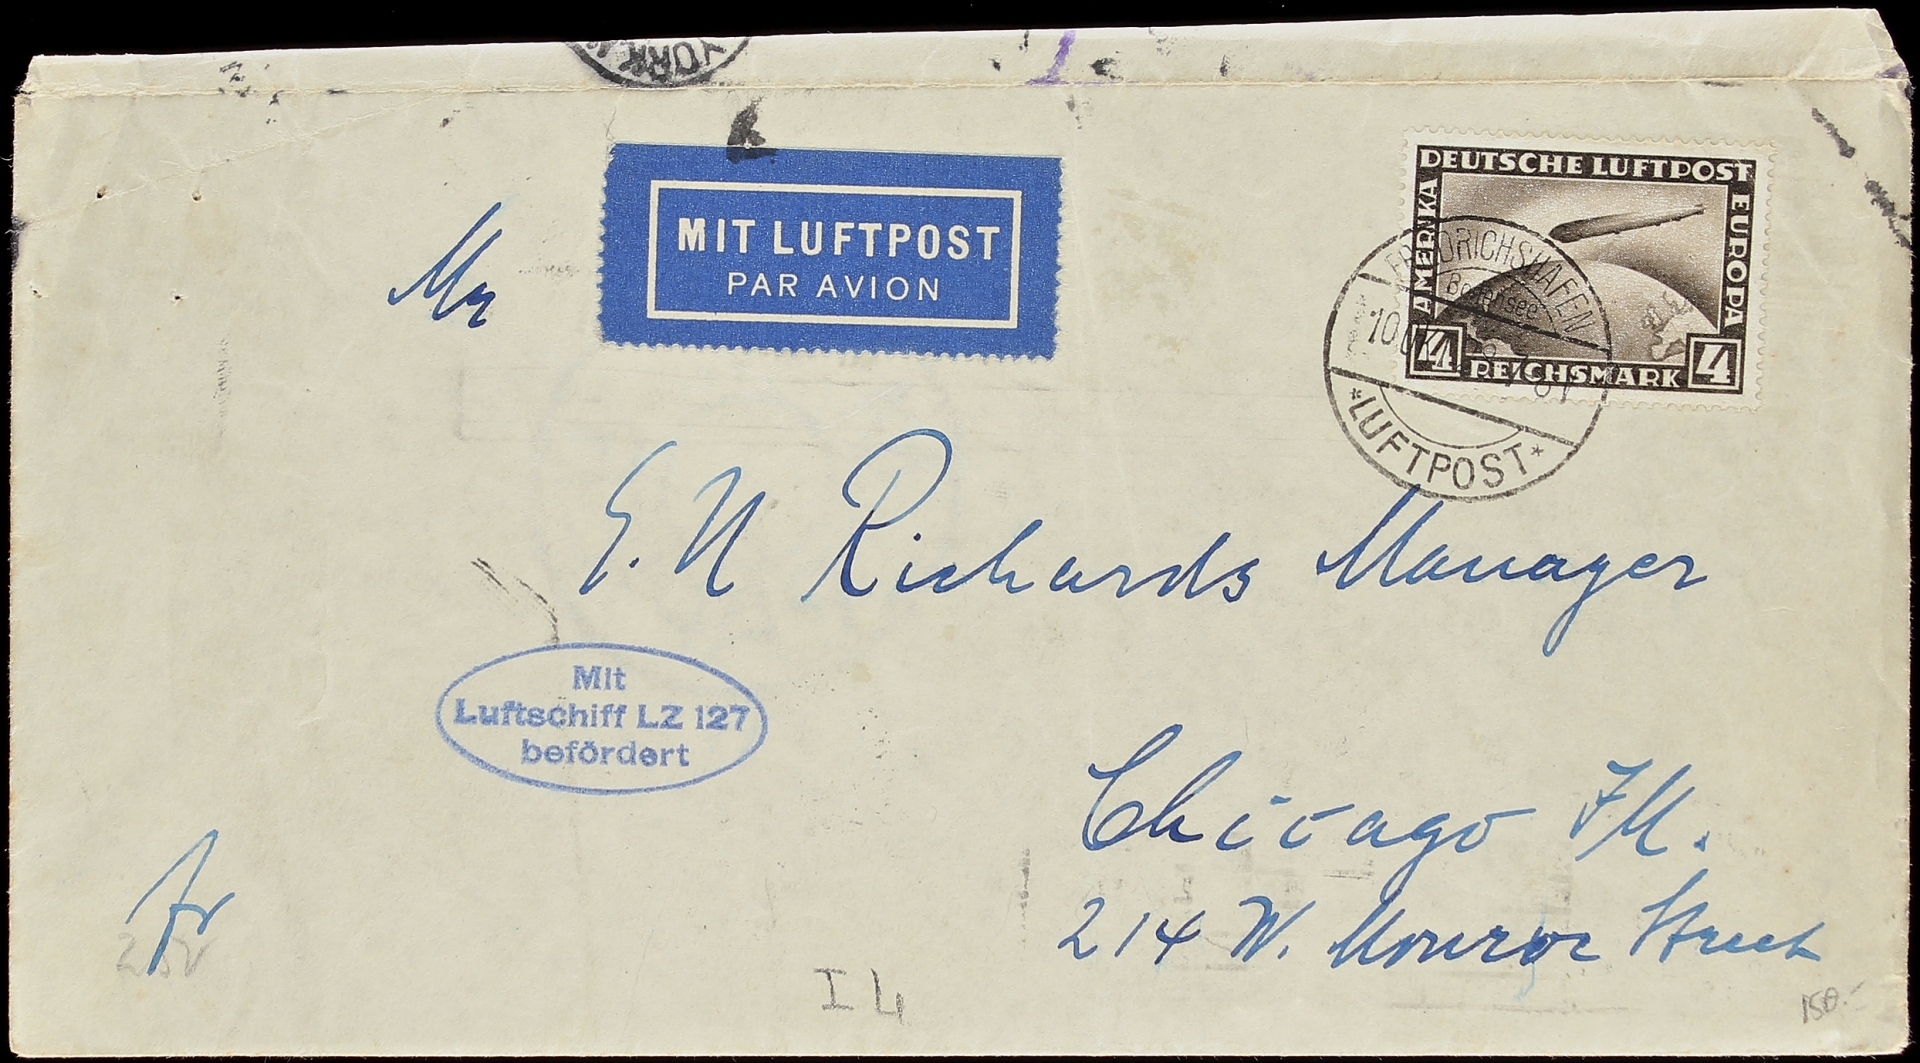 YORK
MIT LUFTPOST
PAR AVION
DEUTSCHE LUFTPOST
AMERIKA
EUROPA
4 REICHSMARK 4
FRIEDRICHSHAFEN
Bodensee
* LUFTPOST *
Mr
E. N Richards Manager
Mit
Luftschiff LZ 127
befördert
Chicago Ill.
214 W. Monroe Street
I 4
150.-